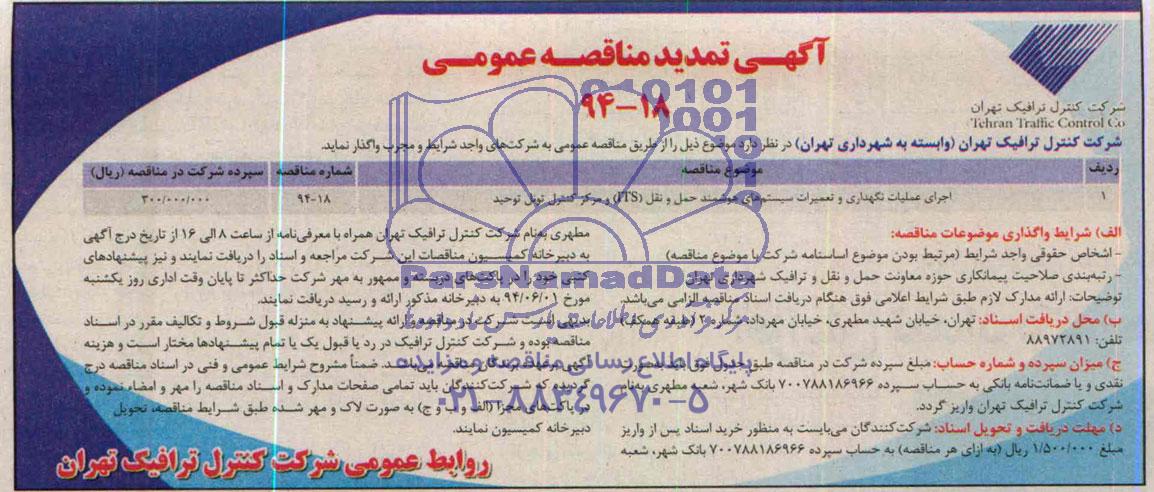 آگهـی تمدید مناقصـه عمومـی
۹۴-۱۸
شرکت کنترل ترافیک تهران
Tehran Traffic Control Co
شرکت کنترل ترافیک تهران (وابسته به شهرداری تهران) در نظر دارد موضوع ذیل را از طریق مناقصه عمومی به شرکت‌های واجد شرایط و مجرب واگذار نماید.
ردیف موضوع مناقصه شماره مناقصه سپرده شرکت در مناقصه (ریال)
۱ اجرای عملیات نگهداری و تعمیرات سیستم‌های هوشمند حمل و نقل (ITS) و مرکز کنترل تونل توحید ۹۴-۱۸ ۳۰۰/۰۰۰/۰۰۰
الف) شرایط واگذاری موضوعات مناقصه:
- اشخاص حقوقی واجد شرایط (مرتبط بودن موضوع اساسنامه شرکت با موضوع مناقصه)
- رتبه‌بندی صلاحیت پیمانکاری حوزه معاونت حمل و نقل و ترافیک شهرداری تهران
توضیحات: ارائه مدارک لازم طبق شرایط اعلامی فوق هنگام دریافت اسناد مناقصه الزامی می‌باشد.
ب) محل دریافت اسناد: تهران، خیابان شهید مطهری، خیابان مهرداد، شماره ۲ (طبقه همکف)
تلفن: ۸۸۹۷۲۸۹۱
ج) میزان سپرده و شماره حساب: مبلغ سپرده شرکت در مناقصه طبق جدول فوق باید به صورت
نقدی و یا ضمانت‌نامه بانکی به حساب سپرده ۷۰۰۷۸۸۱۸۶۹۶۶ بانک شهر، شعبه مطهری به‌نام
شرکت کنترل ترافیک تهران واریز گردد.
د) مهلت دریافت و تحویل اسناد: شرکت‌کنندگان می‌بایست به منظور خرید اسناد پس از واریز
مبلغ ۱/۵۰۰/۰۰۰ ریال (به ازای هر مناقصه) به حساب سپرده ۷۰۰۷۸۸۱۸۶۹۶۶ بانک شهر، شعبه
مطهری به‌نام شرکت کنترل ترافیک تهران همراه با معرفی‌نامه از ساعت ۸ الی ۱۶ از تاریخ درج آگهی
به دبیرخانه کمیسیون مناقصات این شرکت مراجعه و اسناد را دریافت نمایند و نیز پیشنهادهای
کتبی خود را در پاکت‌های دربسته و ممهور به مهر شرکت حداکثر تا پایان وقت اداری روز یکشنبه
مورخ ۹۴/۰۶/۰۱ به دبیرخانه مذکور ارائه و رسید دریافت نمایند.
بدیهی است شرکت در مناقصه و ارائه پیشنهاد به منزله قبول شروط و تکالیف مقرر در اسناد
مناقصه بوده و شرکت کنترل ترافیک در رد یا قبول یک یا تمام پیشنهادها مختار است و هزینه
آگهی برعهده برندگان مناقصه می‌باشد. ضمناً مشروح شرایط عمومی و فنی در اسناد مناقصه درج
گردیده که شرکت‌کنندگان باید تمامی صفحات مدارک و اسناد مناقصه را مهر و امضاء نموده و
در پاکت‌های مجزا (الف و ب و ج) به صورت لاک و مهر شده طبق شرایط مناقصه، تحویل
دبیرخانه کمیسیون نمایند.
روابط عمومی شرکت کنترل ترافیک تهران
ParsNamadData
پایگاه اطلاع رسانی مناقصه و مزایده
۰۲۱-۸۸۳۴۹۶۷۰-۵